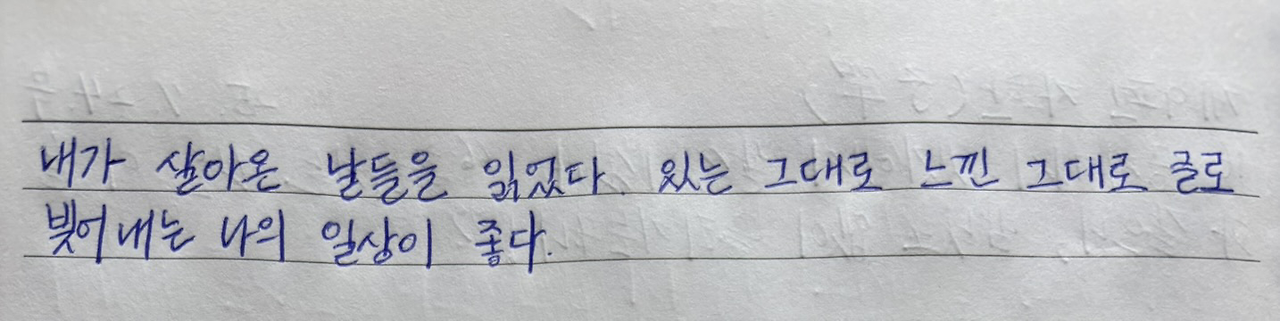 내가 살아온 날들을 읽었다. 있는 그대로 느낀 그대로 글로
빚어내는 나의 일상이 좋다.